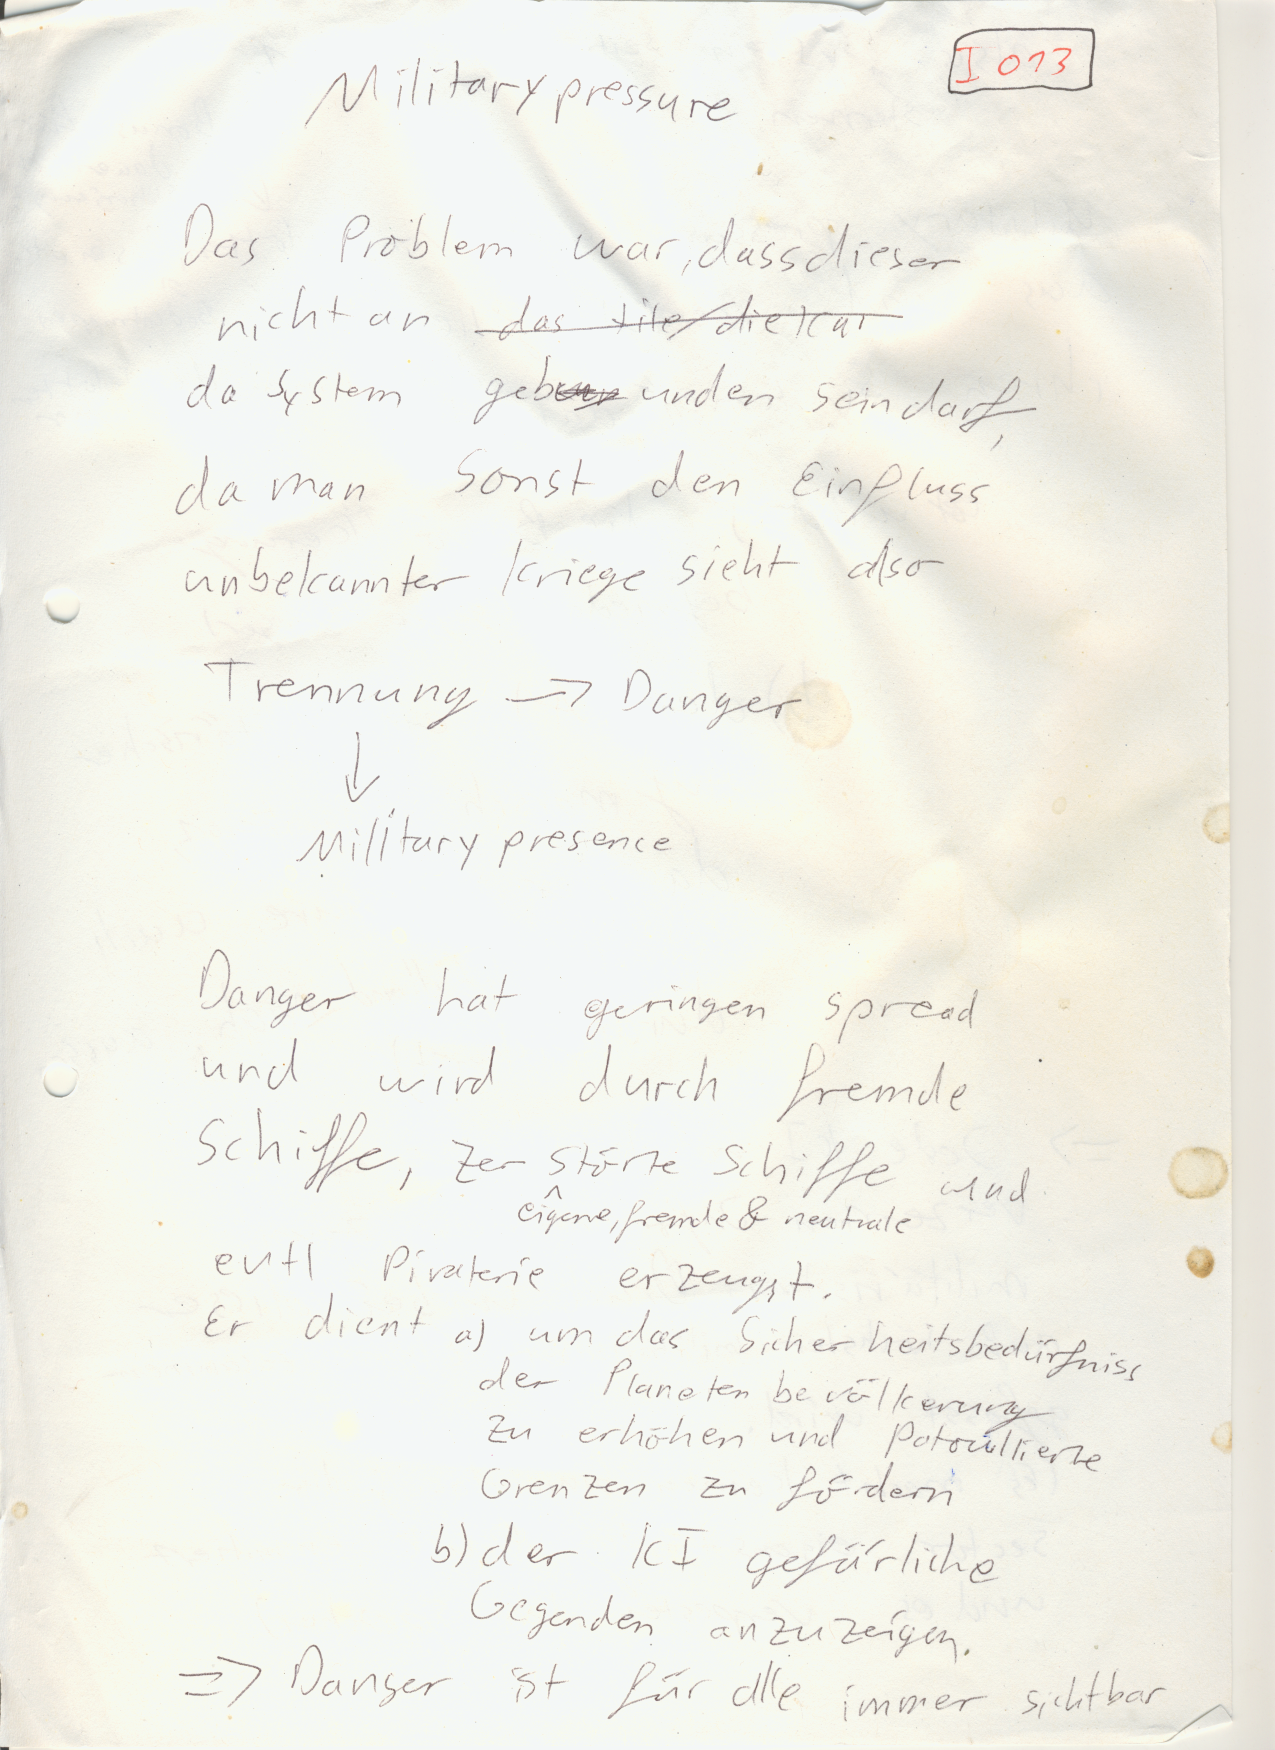 I 013
Military pressure
Das Problem war, dass dieser
nicht an das tile/die kar
da System gebunden sein darf,
da man sonst den Einfluss
unbekannter kriege sieht also
Trennung -> Danger
↓
Military presence
Danger hat geringen spread
und wird durch fremde
Schiffe, zerstörte Schiffe und
eigene, fremde & neutrale
evtl Piraterie erzeugt.
Er dient a) um das Sicherheitsbedürfniss
der Planetenbevölkerung
zu erhöhen und Patroullierte
Grenzen zu fördern
b) der KI gefärliche
Gegenden anzuzeigen.
=> Danger ist für alle immer sichtbar